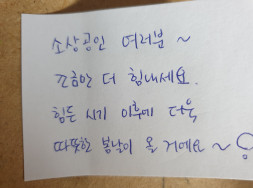 소상공인 여러분 ~
조금만 더 힘내세요.
힘든 시기 이후에 더욱
따뜻한 봄날이 올 거예요 ~